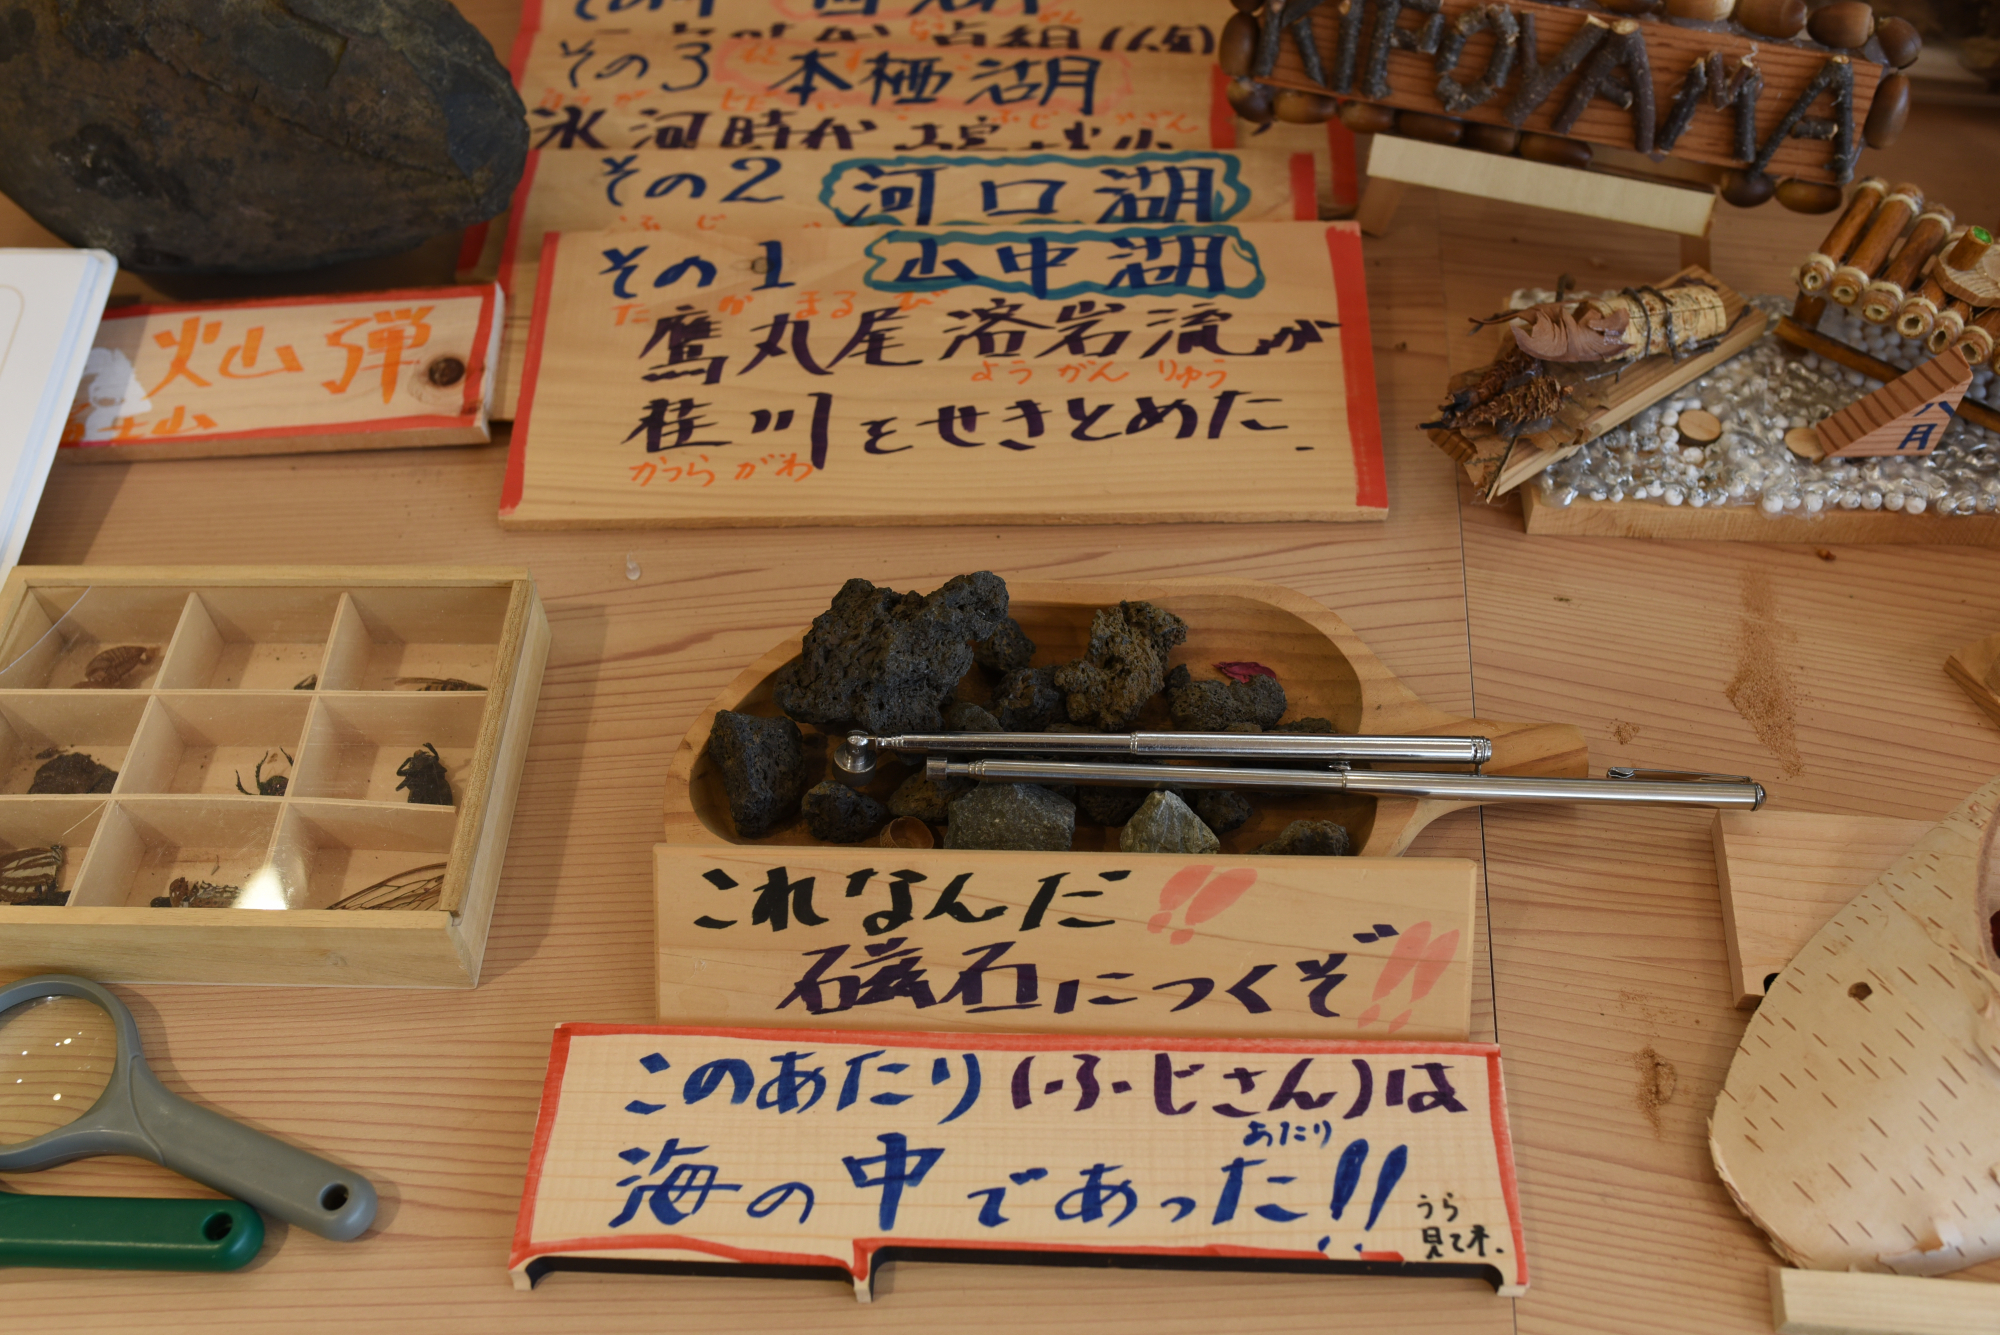 その3 本栖湖
氷河時代
その2 河口湖
ふじ
その1 山中湖
たかまるび
鷹丸尾溶岩流が
ようがんりゅう
桂川をせきとめた.
かつらがわ
火山弾
KIYOYAMA
八月
これなんだ!!
磁石につくぞ!!
このあたり(ふじさん)は
あたり
海の中であった!!
うら
見て来.